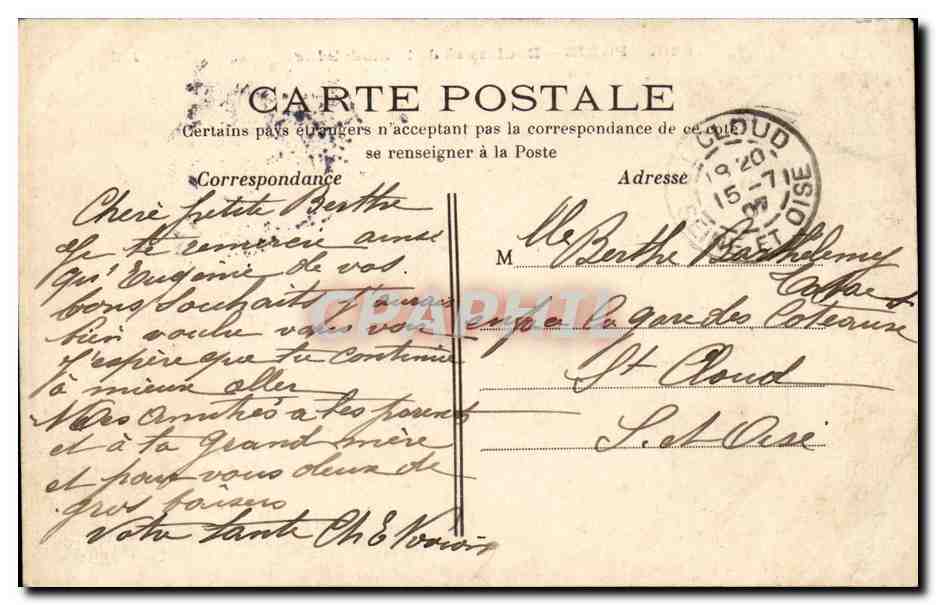 CARTE POSTALE
Certains pays étrangers n'acceptant pas la correspondance de ce coté
se renseigner à la Poste
Correspondance
Adresse
CLOUD
18 20
15 -7
07
ET OISE
Chère petite Berthe
Je te remercie ainsi
qu'Eugénie de vos
bons souhaits j'aurais
bien voulu vous voir
J'espère que tu continue
à mieux aller
Nos amitiés a tes parents
et à ta grand mère
et pour vous deux de
gros baisers
Votre tante Ch E
M
Mlle Berthe Barthélemy
a la gare des Coteaux
St Cloud
S. et Oise
CPAPHIL